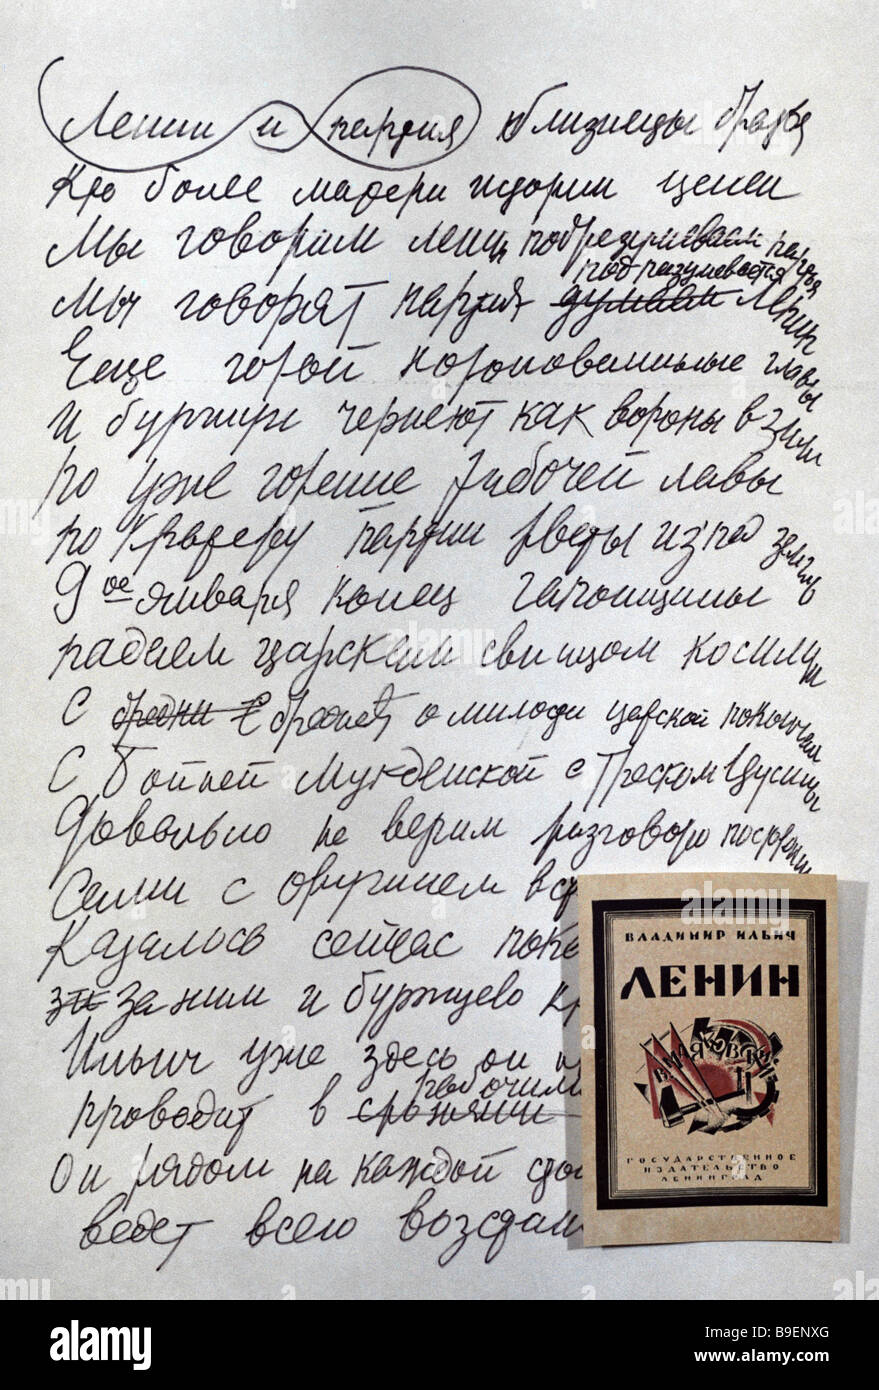 Ленин и партия близнецы братья
Кто более матери истории ценен
Мы говорим Ленин подразумеваем партия
подразумевается
мы говорят партия думаем Ленин
Еще горой коронованные главы
И буржуи чернеют как вороны в зиме
но уже горение рабочей лавы
по кратеру партии рвется из'под земли
9ое января конец гапонщины
падаем царским свинцом косимы
С бредни о милости царской покончены
С бойней Мукденской с треском Цусимы
Довольно не верим разговорам посторонним
Сами с оружием
Казалось сейчас
за ним и буржуево
Ильич уже здесь он
рабочими
проводит в
Он рядом на каждой
ведет всего восстания
ВЛАДИМИР ИЛЬИЧ
ЛЕНИН
В. МАЯКОВСКИЙ
ГОСУДАРСТВЕННОЕ
ИЗДАТЕЛЬСТВО
ЛЕНИНГРАД
alamy
alamy
Image ID: B9ENXG
www.alamy.com